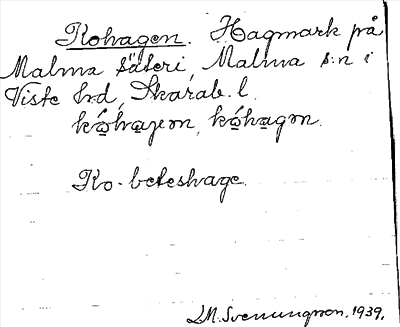 Kohagen. Hagmark på
Malma säteri, Malma s:n i
Viste hrd, Skarab. l.
kóhvaɟen, kóhagn.
Ko-beteshage.
L.M. Svenungsson. 1939.